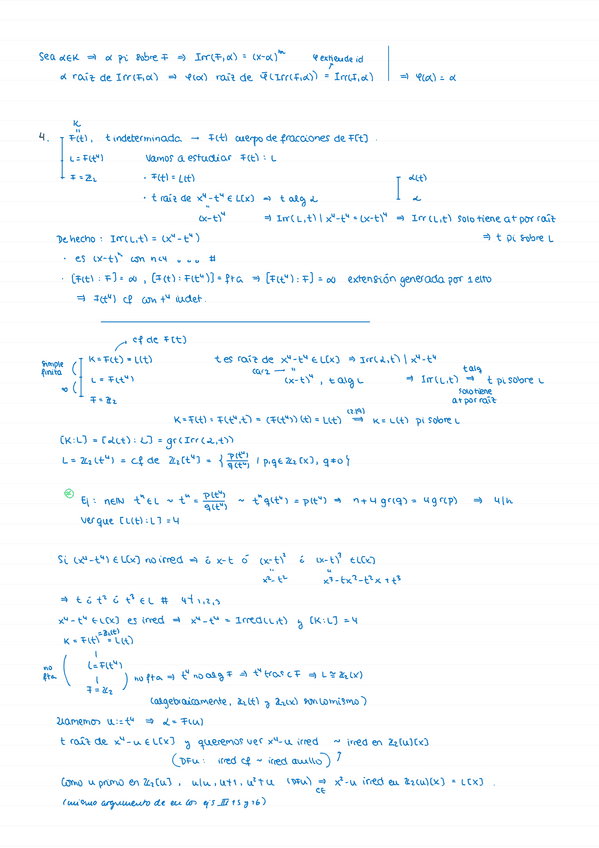 Sea α∈K ⇒ α pi sobre F ⇒ Irr(F,α) = (x-α)^m   φ extiende id
α raíz de Irr(F,α) ⇒ φ(α) raíz de φ̄(Irr(F,α)) = Irr(F,α) ⇒ φ(α) = α
K
"
4. F(t), t indeterminada → F(t) cuerpo de fracciones de F[t].
L = F(t⁴) Vamos a estudiar F(t) : L
F = ℤ₂ · F(t) = L(t)
· t raíz de x⁴-t⁴ ∈ L[x] ⇒ t alg L
L(t)
L
(x-t)⁴ ⇒ Irr(L,t) | x⁴-t⁴ = (x-t)⁴ ⇒ Irr(L,t) solo tiene a t por raíz
⇒ t pi sobre L
De hecho: Irr(L,t) = (x⁴-t⁴)
· es (x-t)ⁿ con n<4 ... #
· [F(t) : F] = ∞, [F(t) : F(t⁴)] = fta ⇒ [F(t⁴) : F] = ∞ extensión generada por 1 elto
⇒ F(t⁴) cf con t⁴ indet.
cf de F[t]
simple finita
K = F(t) = L(t) t es raíz de x⁴-t⁴ ∈ L[x] ⇒ Irr(L,t) | x⁴-t⁴
L = F(t⁴) car 2 → (x-t)⁴, t alg L ⇒ Irr(L,t) ⇒ t pi sobre L
t alg
∞
F = ℤ₂ solo tiene a t por raíz
K = F(t) = F(t⁴,t) = (F(t⁴))(t) = L(t) ⇒ K = L(t) pi sobre L
[K:L] = [L(t) : L] = gr(Irr(L,t))
L = ℤ₂(t⁴) = cf de ℤ₂[t⁴] = { p(t⁴)/q(t⁴) / p,q ∈ ℤ₂[x], q≠0 }
Ej: n∈ℕ tⁿ ∈ L ~ tⁿ = p(t⁴)/q(t⁴) ~ tⁿq(t⁴) = p(t⁴) ⇒ n+4gr(q) = 4gr(p) ⇒ 4/n
Ver que [L(t):L] = 4
Si (x⁴-t⁴) ∈ L[x] no irred ⇒ ó x-t ó (x-t)² ó (x-t)³ ∈ L[x]
x²-t² x³-tx²-t²x+t³
⇒ t ó t² ó t³ ∈ L # 4∤1,2,3
x⁴-t⁴ ∈ L[x] es irred ⇒ x⁴-t⁴ = Irred(L,t) y [K:L] = 4
K = F(t) = L(t)
= ℤ₂(t)
no fta
L = F(t⁴)
F = ℤ₂ ) no fta ⇒ t⁴ no alg F ⇒ t⁴ trasc F ⇒ L ≅ ℤ₂(x)
(algebraicamente, ℤ₂(t) y ℤ₂(x) son lo mismo)
Llamemos u := t⁴ ⇒ L = F(u)
t raíz de x⁴-u ∈ L[x] y queremos ver x⁴-u irred ~ irred en ℤ₂[u][x]
(DFU: irred cf ~ irred anillo)
Como u primo en ℤ₂[u], u/u, u∤1, u²∤u (DFU) ⇒ x²-u irred en ℤ₂(u)[x] = L[x].
CE
(mismo argumento de en los ejs III 15 y 16)